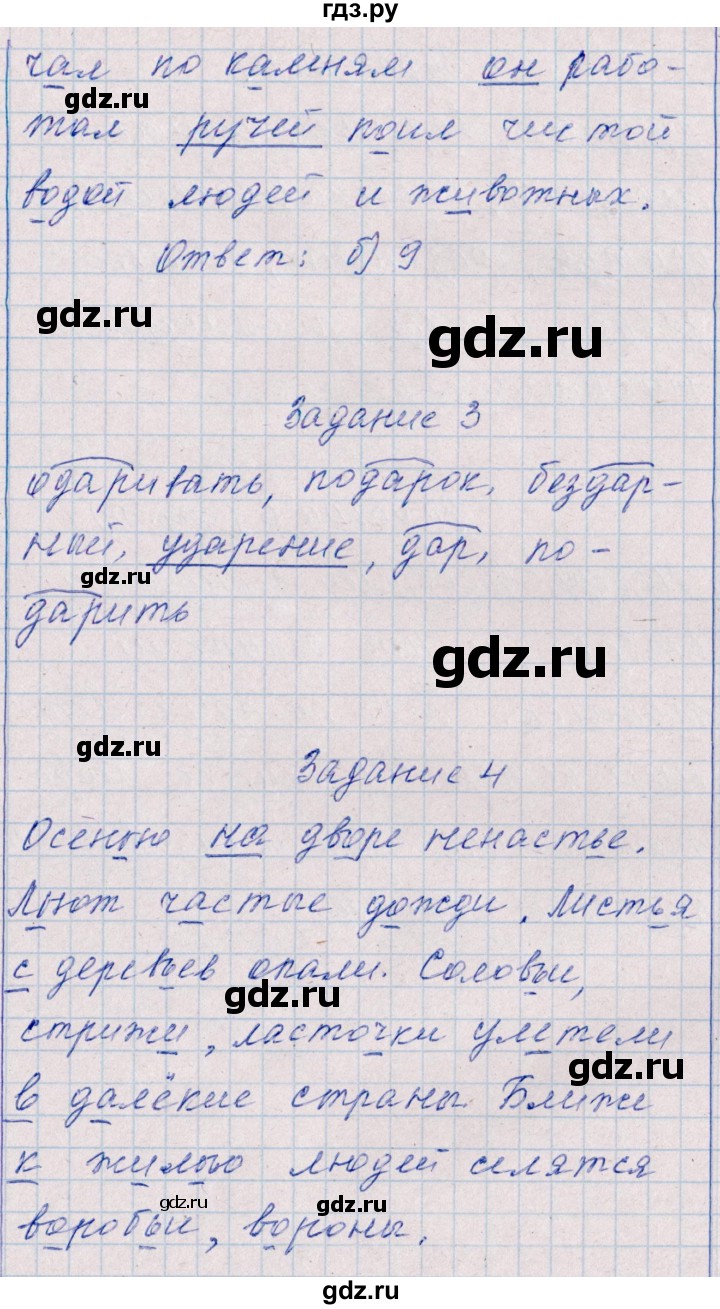 гдз.ру
чал по камням он рабо-
gdz.ru
тал ручей поил чистой
водой людей и животных.
Ответ: б) 9
gdz.ru
gdz.ru
Задание 3
одаривать, подарок, бездар-
ный, ударение, дар, по-
gdz.ru
дарить
gdz.ru
gdz.ru
Задание 4
Осенью на дворе ненастье.
Льют частые дожди. Листья
с деревьев опали. Соловьи,
gdz.ru
стрижи, ласточки улетели
gdz.ru
в далёкие страны Ближе
к жилью людей селятся
gdz.ru
gdz.ru
воробьи, вороны.
gdz.ru